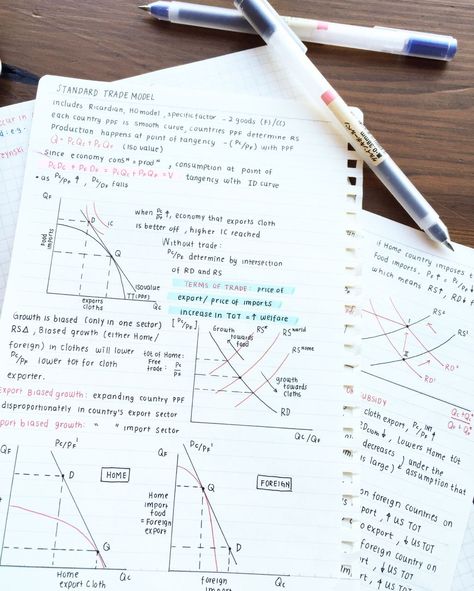 STANDARD TRADE MODEL
includes Ricardian, HO model, specific factor - 2 goods (F)/(C)
each country PPF is smooth curve, countries PPF determine RS
Production happens at point of tangency -(Pc/PF) with PPF
Q - PcQc + PFQF (iso value)
since economy consⁿ = prodⁿ, consumption at point of
PcDc + PFDF = PcQc + PFQF = V tangency with ID curve
• as Pc/PF ↑, PF/Pc falls
QF
Food imports
D
IC
Q
isovalue
TT(PPF)
exports cloths
Qc
when Pc/PF ↑, economy that exports cloth
is better off, higher IC reached
Without trade:
Pc/PF determine by intersection
of RD and RS
TERMS OF TRADE: price of
export/price of imports
increase in TOT = ↑ welfare
Growth is biased (only in one sector)
RS∆, Biased growth (either Home/
foreign) in clothes will lower
Pc/PF lower tot for cloth
exporter.
tot of Home:
Free trade: Pc/PF
[Pc/PF]
Growth towards food
RS*
RS world
RS Home
growth towards cloths
RD
Qc/QF
Export Biased growth: expanding country PPF
disproportionately in country's export sector
import biased growth: " " import sector
QF
Pc/PF¹
D
HOME
Q
Home export cloth
Qc
Home import food = Foreign export
QF
Pc/PF¹
FOREIGN
Q
D
foreign import
Qc
if Home country imposes
Food imports, PF ↑
which means RS↑, RD
1
2
RS
RD²
RD¹
SUBSIDY
cloth export, Pc/PF INT ↑
Lowers Home tot
decreases) under the
is large) assumption that
on foreign countries on
port, ↑ US TOT
o export, ↓ US TOT
foreign country on
t, ↓ US TOT
port, ↑ US TOT
0.38mm